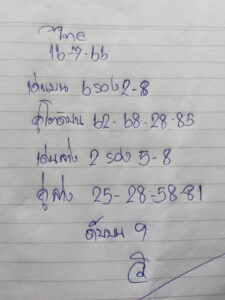 ไทย
16-7-66
เด่นบน 6 รอง 2-8
คู่โต๊ดบน 62-68-28-85
เด่นล่าง 2 รอง 5-8
คู่ล่าง 25-28-58-81
ดับบน 9